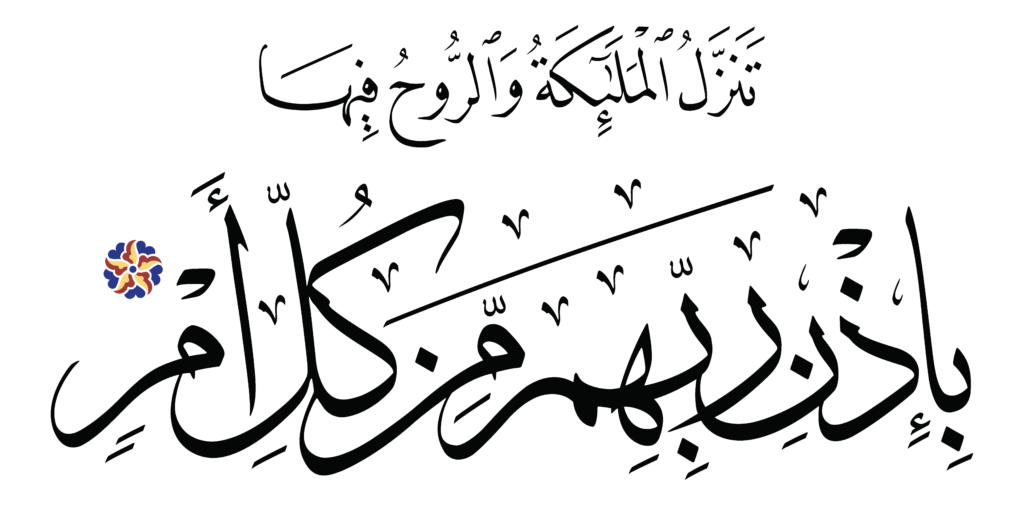 تَنَزَّلُ ٱلْمَلَٰٓئِكَةُ وَٱلرُّوحُ فِيهَا
بِإِذْنِ رَبِّهِم مِّن كُلِّ أَمْرٍ